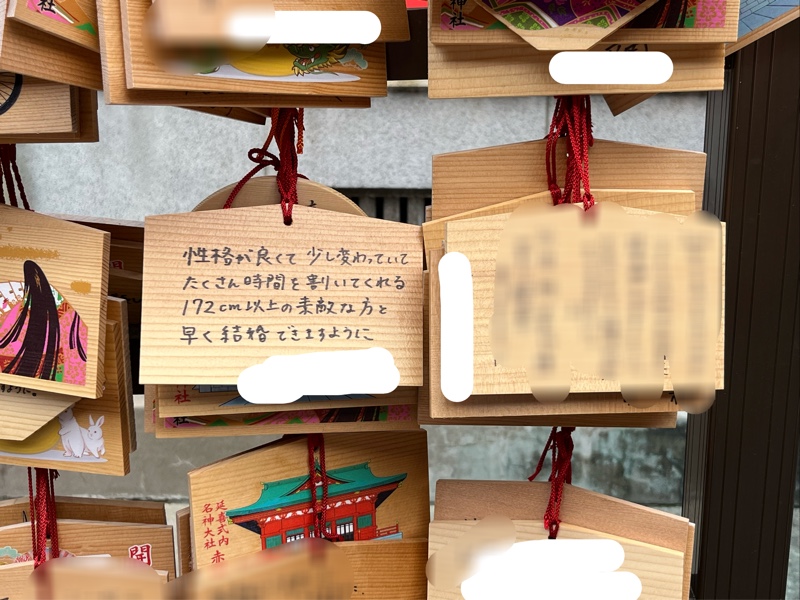 神社
性格が良くて 少し変わっていて
たくさん時間を割いてくれる
172cm以上の素敵な方と
早く結婚できますように
延喜式内
名神大社 赤
開